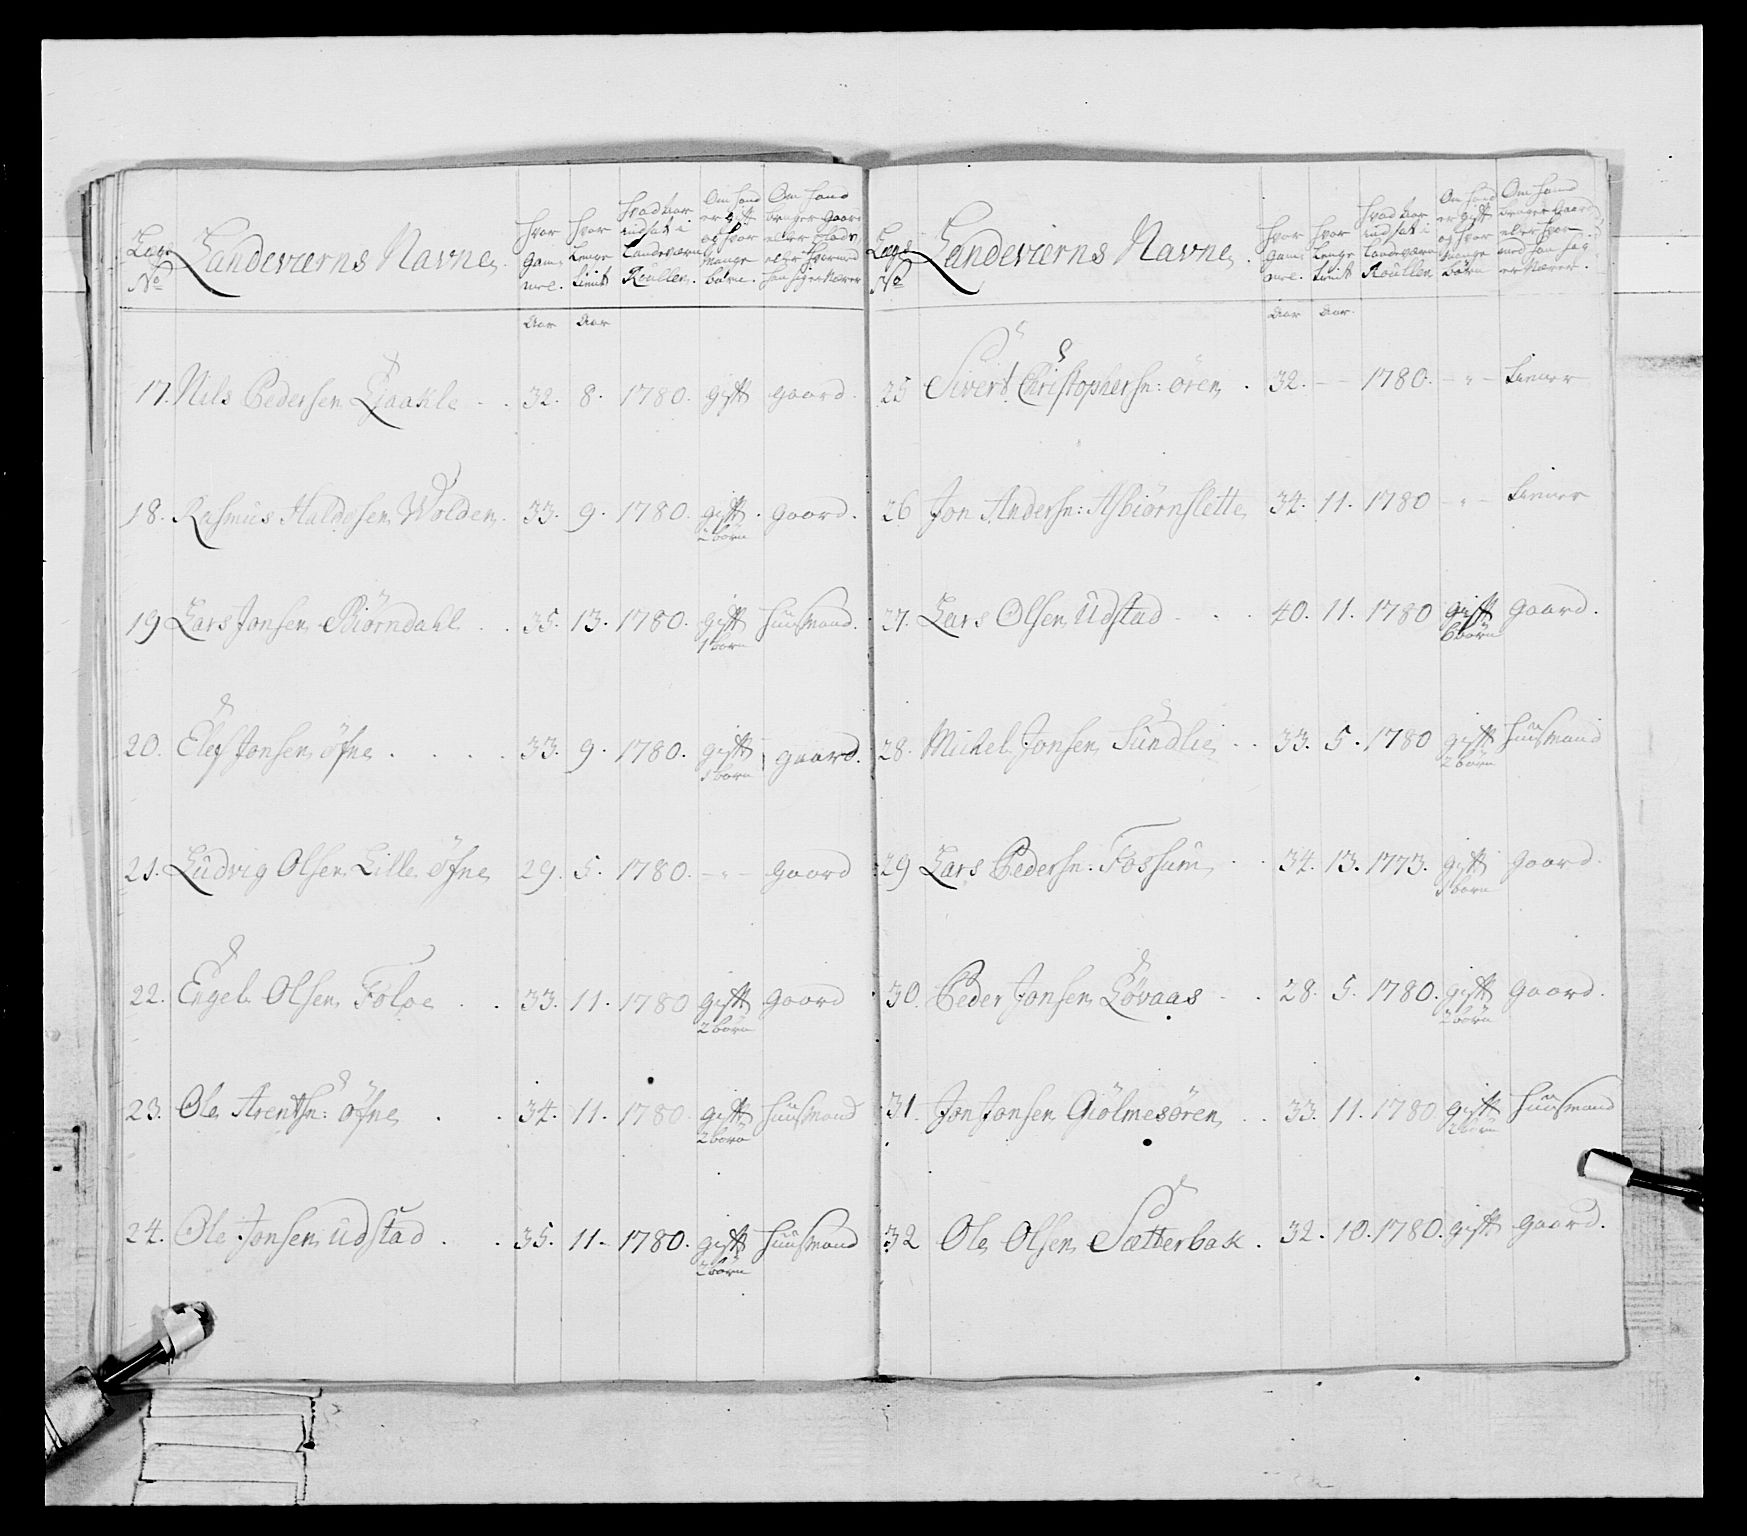 Lægs No Landeværns Navne. Hvor gamel. Hvor Lenge tient Hvad Aar indsat i Landeværn Roullen. Om hand er gift og hvor mange børn. Om hand bruger gaard eller
Aar Aar
17. Nils Pedersen Gjaakle . . 32. 8. 1780. gift gaard.
18. Rasmus Haldosen Wolden. 33. 9. 1780. gift. 2 børn gaard.
19 Lars Jonsen Biørndahl . . 35. 13. 1780. gift 1 born huusmand.
20. Elef Jonsen öfne . . . . 33. 9. 1780. gift børn gaard.
21. Ludvig Olsen Lille öfne 29. 5. 1780. - " - gaard
22. Engel Olsen Foloe . . 33. 11. 1780 gift 2 børn gaard
23. Ole Arentsn: öfne . . 34. 11. 1780. gift 2 børn huusmand
24. Ole Jonsen Udstad . . 35. 11. 1780. gift 2 børn huusmand
Lægs No Landeværns Navne. Hvor gamel. Hvor Lenge tient Hvad Aar indsat i Landeværn Roullen Om hand er gift og hvor mange børn Om hand bruger gaard eller hvor med han sig ernærer.
Aar Aar.
25 Sivert Christophersn: ören . 32. - - 1780. - " - tiener
26 Jon Andersn: Asbiörnslette 34. 11. 1780 - " - tiener
27. Lars Olsen Udstad - . . 40. 11. 1780 gift 6 børn gaard.
28. Michel Jonsen Sundlie . . 33. 5. 1780 gift 2 børn huusmand
29 Lars Pedersn: Fossum . . 34. 13. 1773. gift børn gaard
30. Peder Jonsen Lövaas . . 28. 5. 1780. gift 2 børn gaard.
31. Jon Jonsen Giölmesören . . 33. 11. 1780 gift 2 børn huusmand
32 Ole Olsen Sætterbak . 32. 10. 1780. gift gaard.